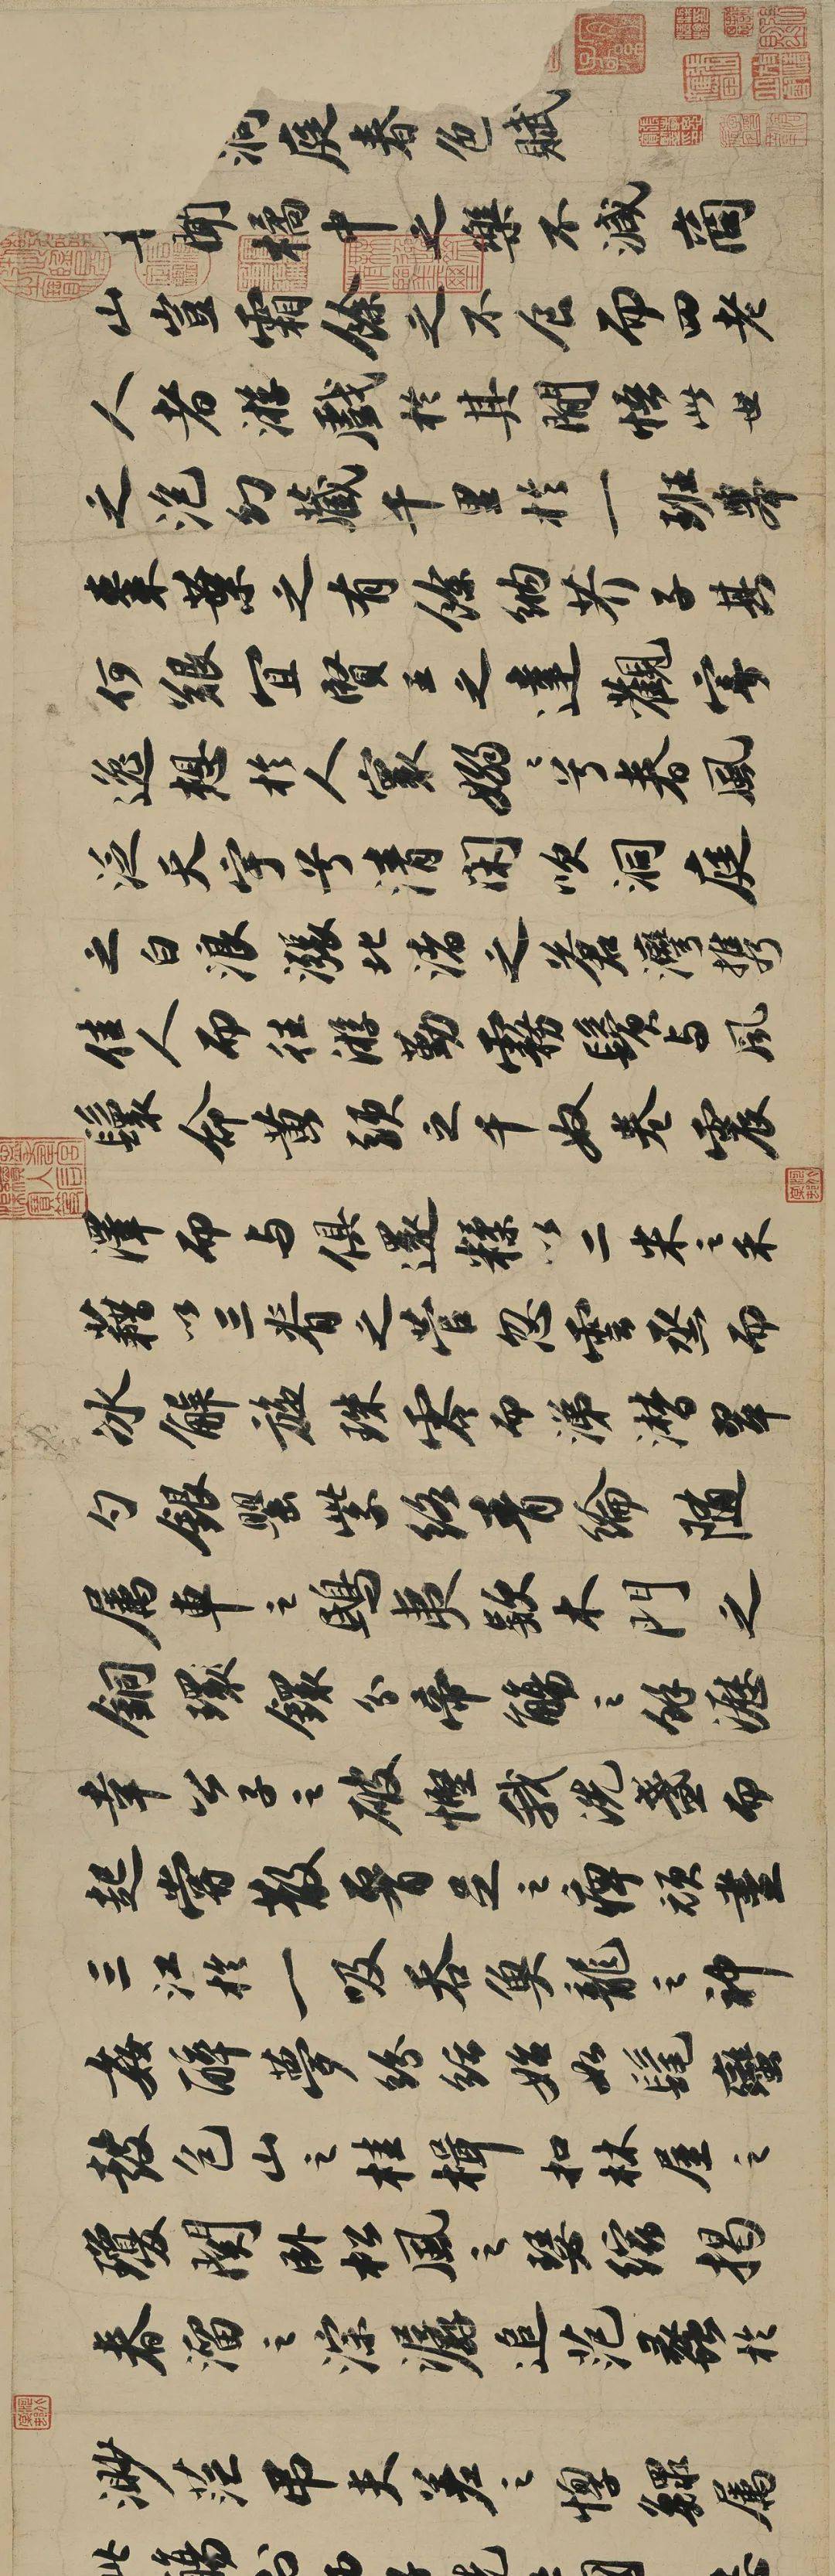 洞庭春色賦
聞橘中之樂不減商
山豈霜餘之不食而四老
人者游戲於其間悟此世
之泡幻藏千里於一班舉
棗葉之有餘納芥子其
何艱宜賢王之達觀寄
逸想於人寰嫋〻兮春風
泛天宇兮清閑吹洞庭
之白浪漲北渚之蒼灣攜
佳人而往游勤霧鬢与風
鬟命黃頭之千奴卷震
澤而与俱還糅以二米之禾
藉以三脊之菅忽雲烝而
冰解旋珠零而涕潸翠
勺銀罌紫絡青綸隨
屬車之鴟夷款木門之
銅環鐶分帝觴之餘瀝
幸公子之破慳我洗盞而
起嘗散腰足之痹頑盡
三江於一吸吞魚龍之神
姦醉夢紛紜始如髦蠻
鼓包山之桂楫扣林屋之
瓊關臥松風之瑟縮揭
春溜之淙潺追范蠡於
渺茫弔夫差之惸鰥屬